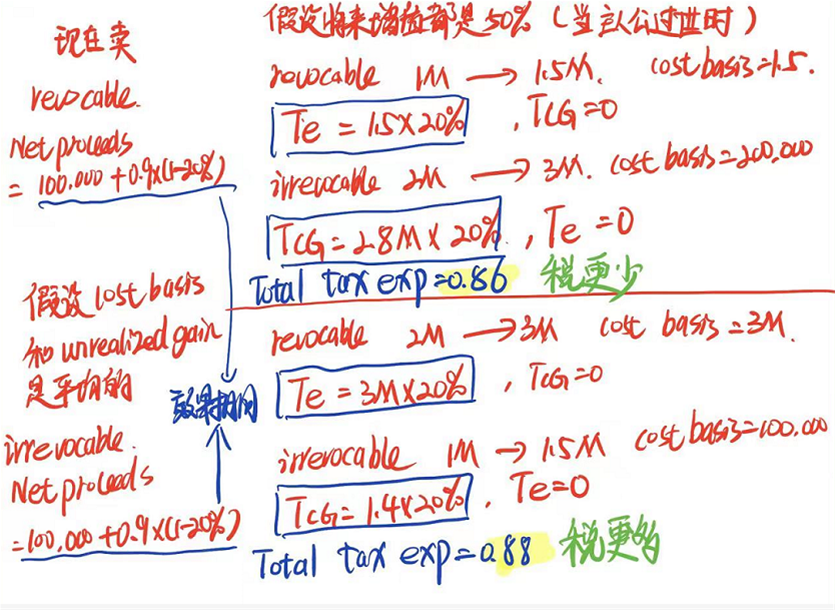 现在卖
revocable.
Net proceeds
= 100,000 + 0.9×(1-20%)
假设cost basis
和 unrealized gain
是平均的
效果相同
irrevocable.
Net proceeds
=100,000+0.9×(1-20%)
假设将来增值都是50% (当主人公过世时)
revocable 1M → 1.5M. cost basis=1.5.
Te = 1.5×20% , TCG=0
irrevocable 2M → 3M. cost basis=200,000
TCG=2.8M×20%. , Te=0
Total tax exp=0.86 税更少
revocable 2M →3M cost basis=3M.
Te = 3M×20% , TCG=0
irrevocable 1M → 1.5M cost basis=100,000
TCG=1.4×20% . Te=0
Total tax exp=0.88 税更多